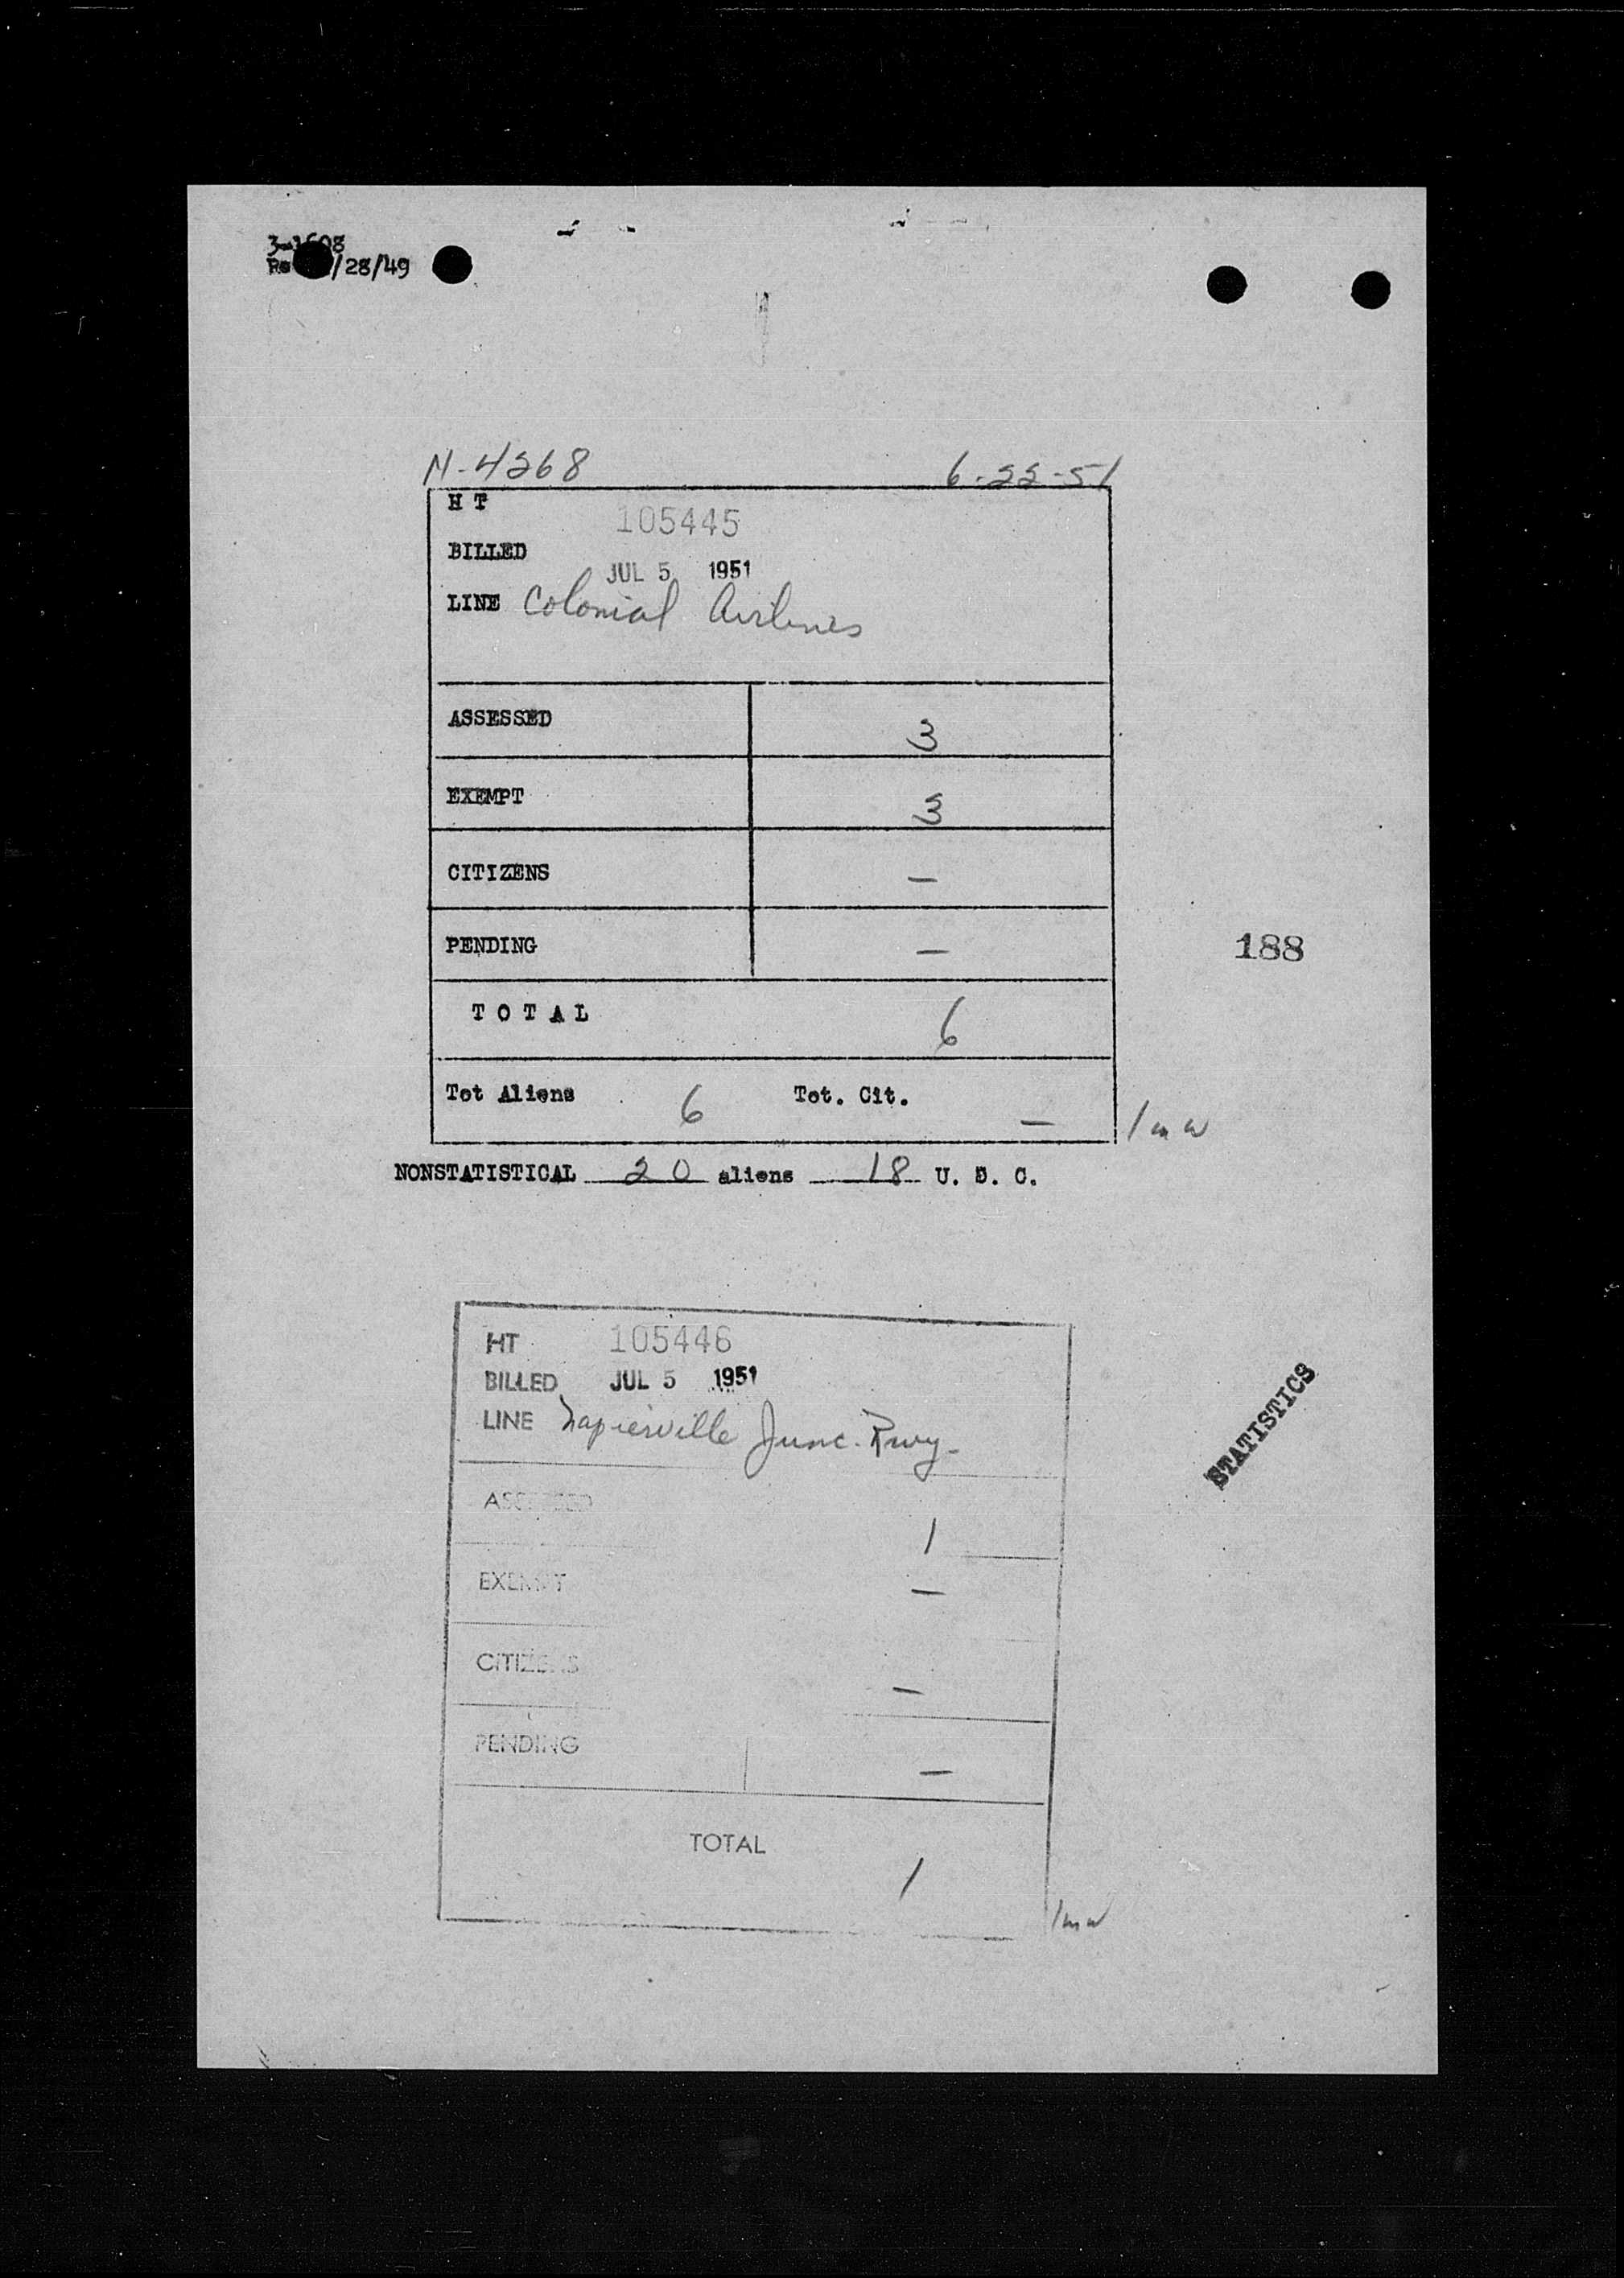 3-1608
/28/49
N-4268 6-22-51
H T 105445
BILLED JUL 5 1951
LINE Colonial Airlines
ASSESSED 3
EXEMPT 3
CITIZENS —
PENDING —
188
T O T A L 6
Tot Aliens 6 Tot. Cit. —
/mw
NONSTATISTICAL 20 aliens 18 U. S. C.
HT 105446
BILLED JUL 5 1951
LINE Napierville Junc. Rwy-
STATISTICS
ASSESSED 1
EXEMPT —
CITIZENS —
PENDING —
TOTAL 1
/mw